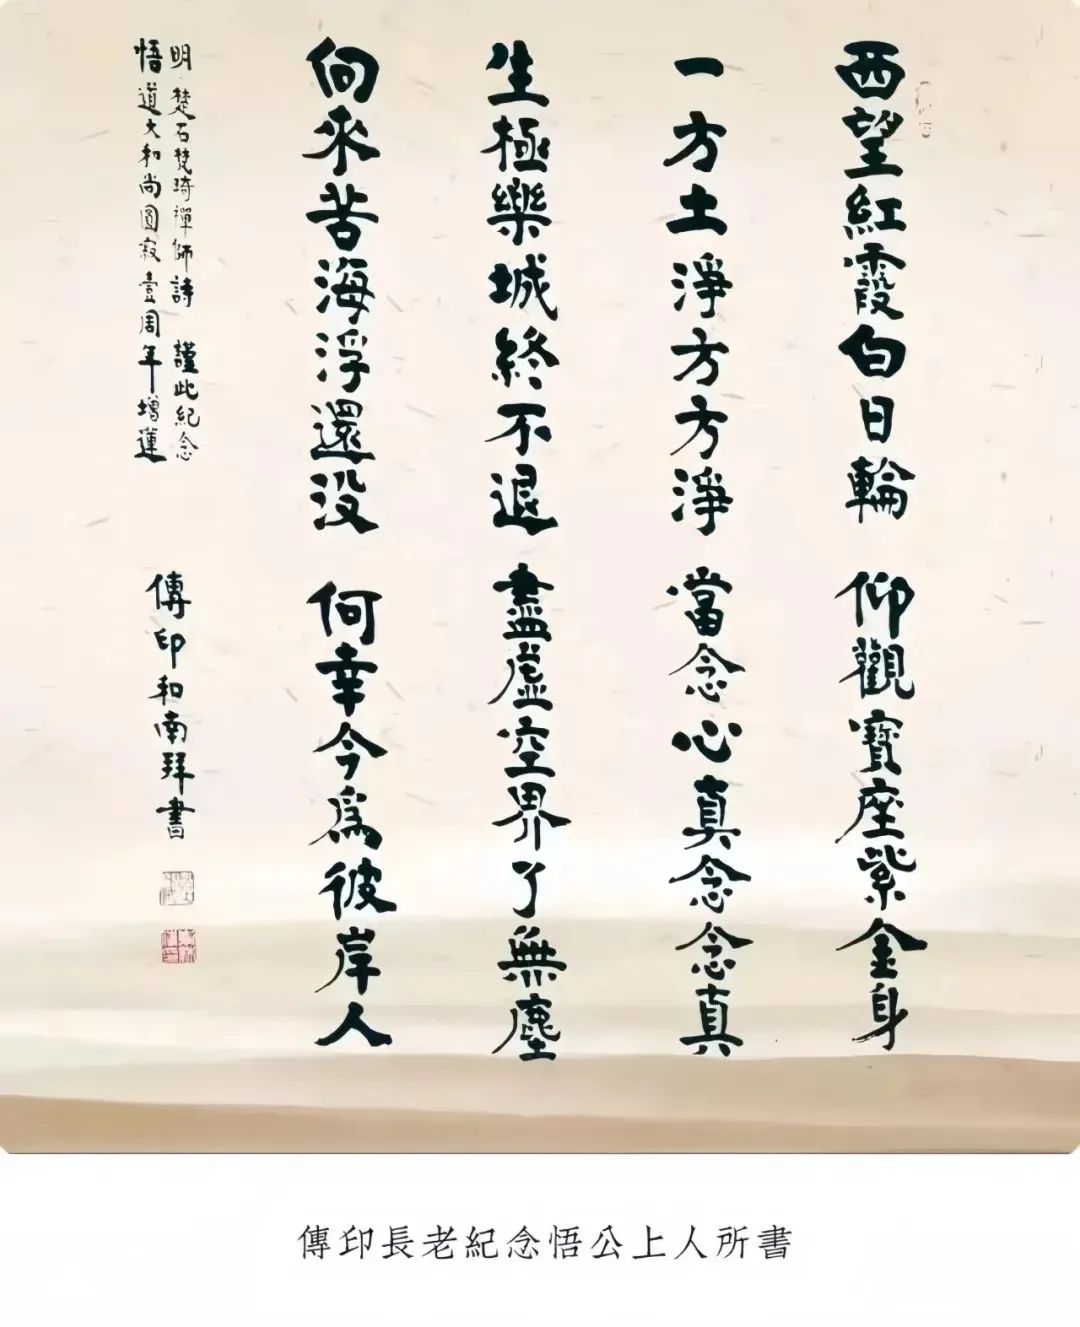 西望紅霞白日輪
仰觀寶座紫金身
一方土淨方方淨
當念心真念念真
生極樂城終不退
盡虛空界了無塵
向來苦海浮還没
何幸今為彼岸人
明 楚石梵琦禪師詩 謹此紀念
悟道大和尚圓寂壹周年增蓮
傳印和南拜書
傳印長老紀念悟公上人所書